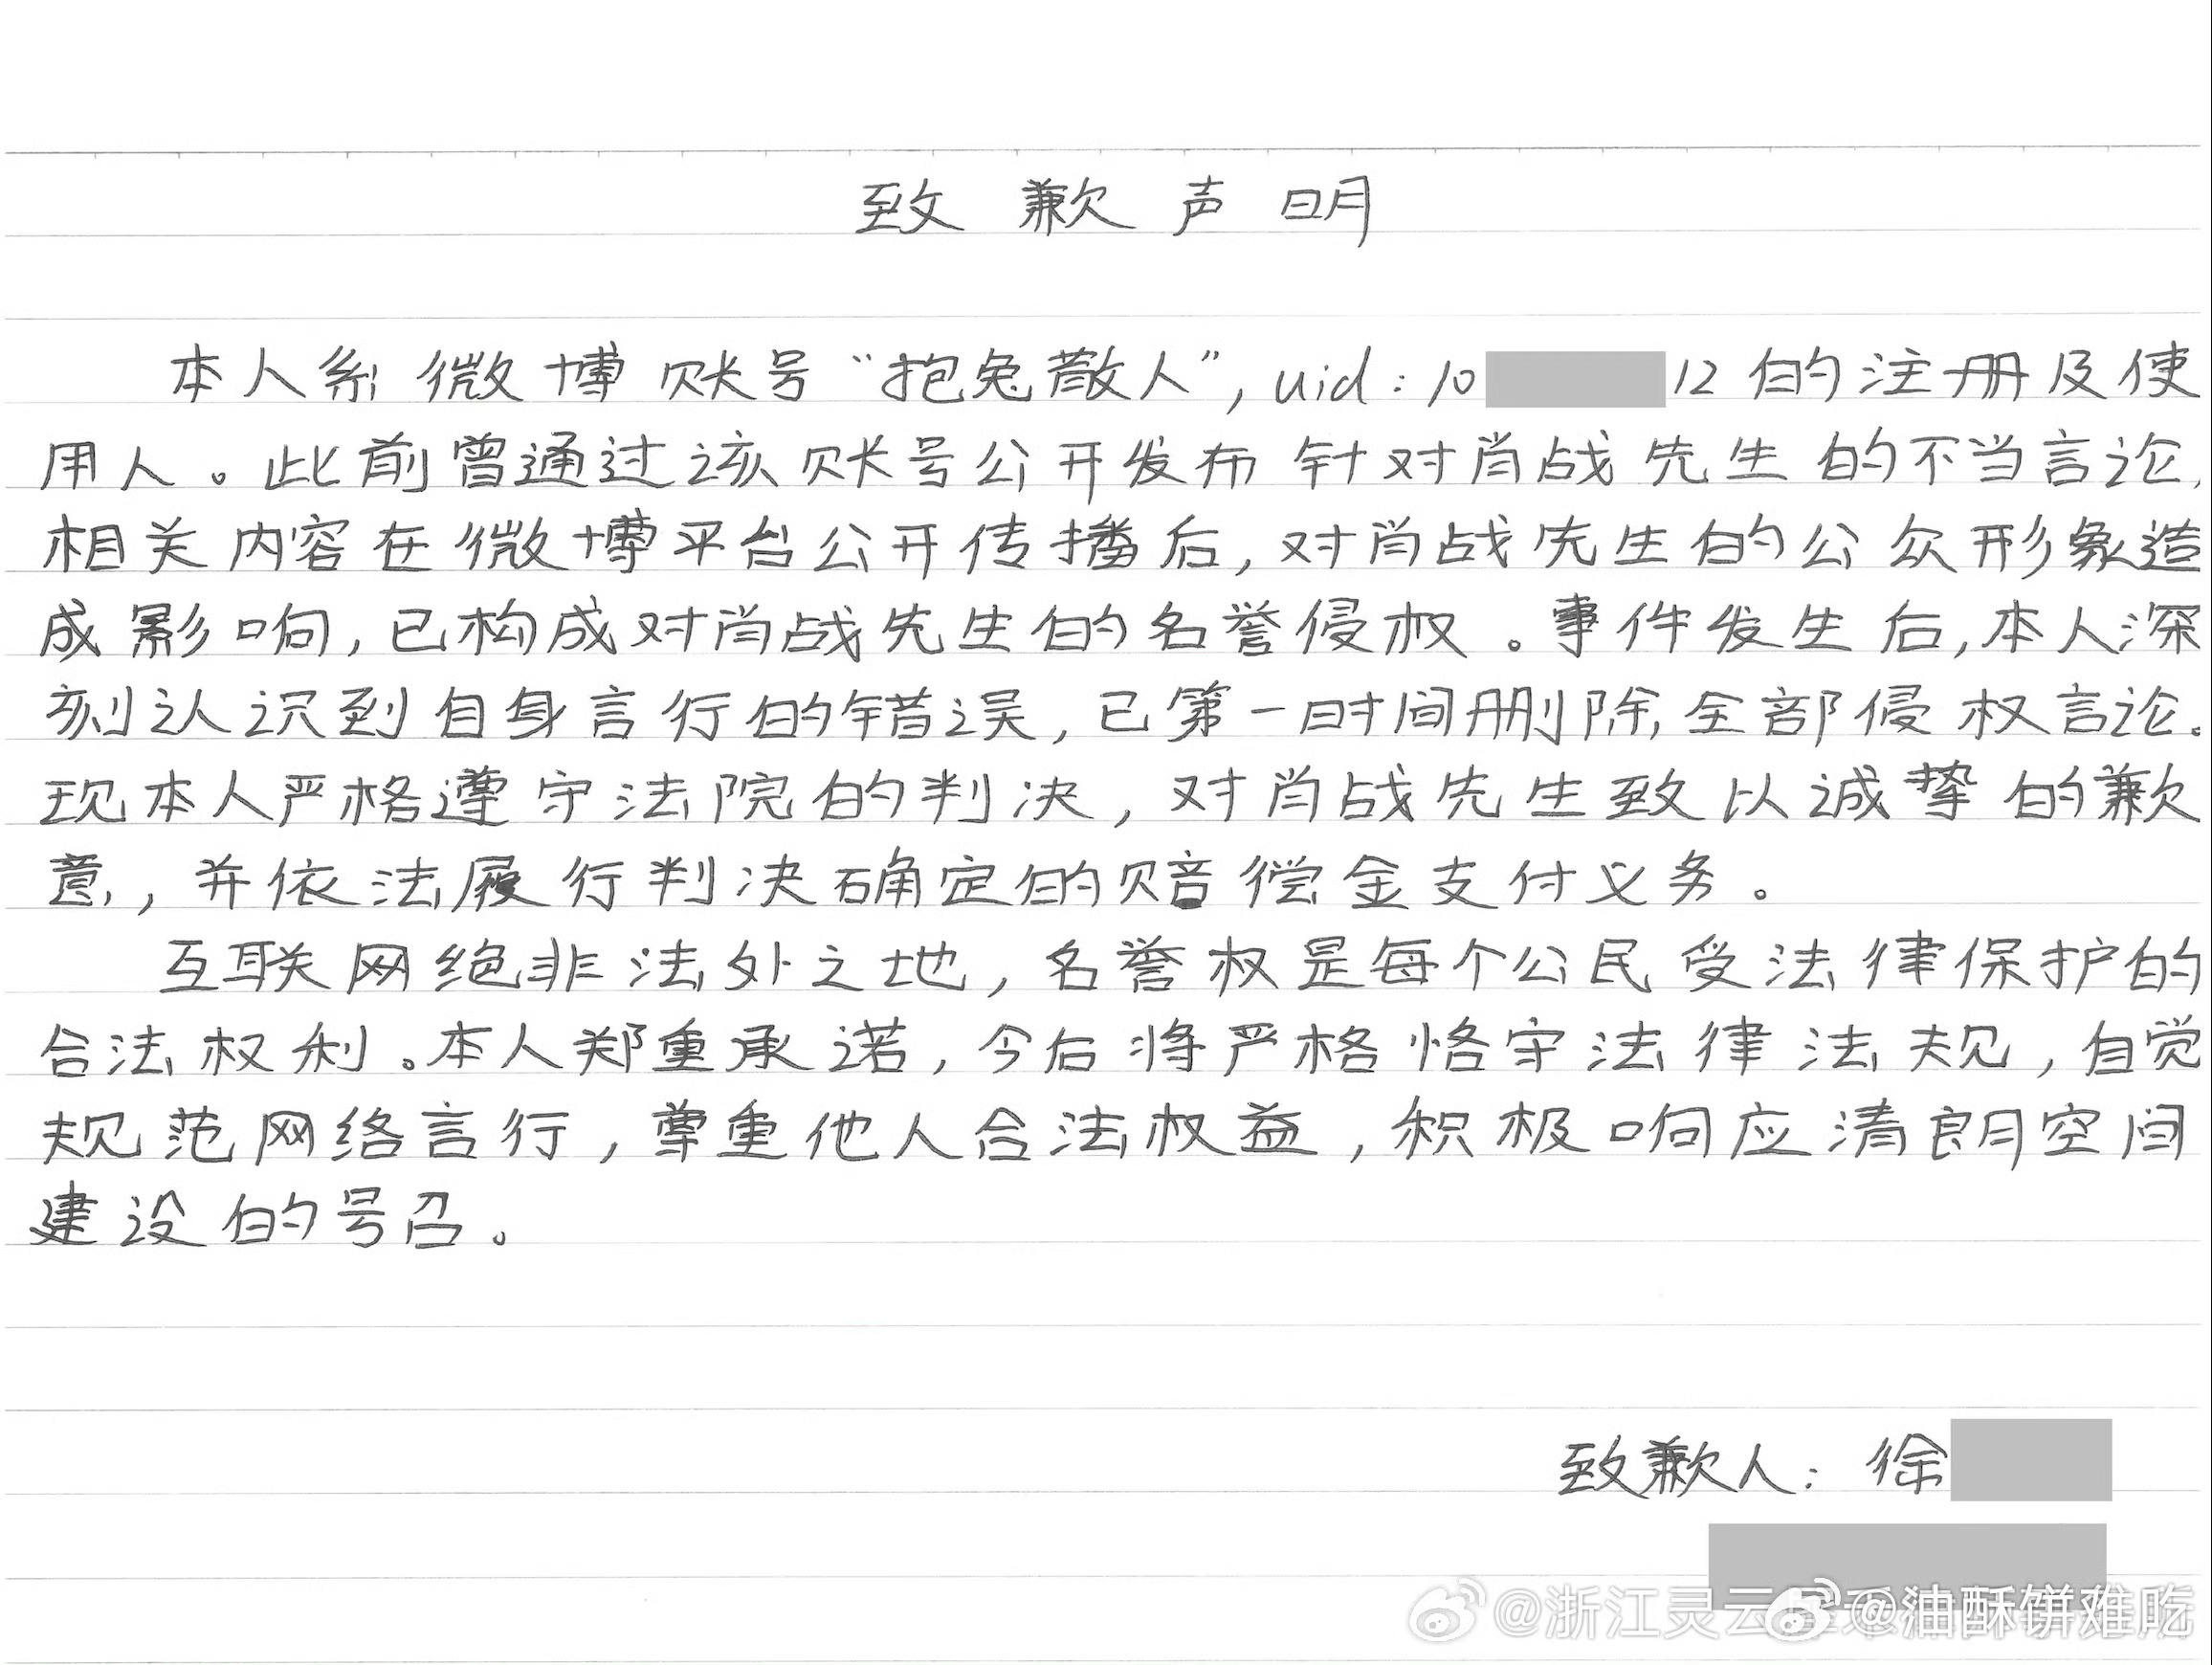 致歉声明
本人系微博账号“抱兔散人”,uid:10 12的注册及使
用人。此前曾通过该账号公开发布针对肖战先生的不当言论,
相关内容在微博平台公开传播后,对肖战先生的公众形象造
成影响,已构成对肖战先生的名誉侵权。事件发生后,本人深
刻认识到自身言行的错误,已第一时间删除全部侵权言论。
现本人严格遵守法院的判决,对肖战先生致以诚挚的歉
意,并依法履行判决确定的赔偿金支付义务。
互联网绝非法外之地,名誉权是每个公民受法律保护的
合法权利。本人郑重承诺,今后将严格恪守法律法规,自觉
规范网络言行,尊重他人合法权益,积极响应清朗空间
建设的号召。
致歉人:徐
@浙江灵云
@油酥饼难吃